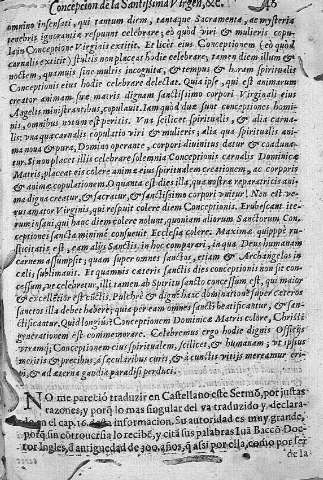 Concepcion de la Santissima Virgen, &c.
omnino insensati, qui tantum diem, tantaque Sacramenta, ac mysteria
tenebris ignorantiæ respuunt celebrare; eò quòd viri & mulieris copu-
la in Conceptione Virginis extitit. Et licèt eius Conceptionem (eò quòd
carnalis extitit) stultis non placeat hodie celebrare; tamen diem illum &
noctem, quamuis sine multis incognita, & tempus & horam spiritualis
Conceptionis eius hodie celebrare delectat. Quia ipse, qui est animarum
creator animam suæ matris dignam sanctissimo corpori Virginali eius
Angelis ministrantibus, copulauit. Iam quòd duæ sunt conceptiones homi-
nis, omnibus notum est peritis. Vna scilicet spiritualis, & alia carna-
lis: vna quæ carnalis copulatio viri & mulieris; alia qua spiritualis ani-
ma noua & pura, Domino operante, corpori diuinitus datur & coaduna-
tur. Si non placet illis celebrare solemnia Conceptionis carnalis Dominicæ
Matris, placeat eis colere animæ eius spiritualem creationem, ac corporis
& animæ copulationem. O quanta est dies illa, qua nostræ reparatricis ani-
ma digna creatur, & sacratur, & sanctissimo corpori vnitur! Non est ve-
rus amator Virginis, qui respuit colere diem Conceptionis. Erubescant ite-
rum insani, qui hanc diem colere nolunt, quoniam aliorum Sanctorum Con-
ceptiones sancta minimè consueuit Ecclesia colere. Maxima quippè stu-
litiæ est, eam alijs Sanctis in hoc comparari, in qua Deus humanam
carnem assumpsit; quam super omnes sanctos, etiam & Archangelos in
cælis sublimauit. Et quamuis cæteris sanctis dies conceptionis non sit con-
cessum, vt celebretur, illi tamen ab Spiritu sancto concessum est, qui maior
& excellentior est cunctis. Pulchrè & dignè hæc dominatione super cæteros
sanctos illa debet habere; quia per eam omnes sancti beatificantur, & san-
ctificantur. Quid longiùs? Conceptionem Dominicæ Matris colere, Christi
generationem est commemorare. Celebremus ergo hodie dignis Officijs
Conceptionem eius spiritualem, scilicet, & humanam; vt ipsius
meritis & precibus, à sæcularibus curis, & à cunctis vitijs mereamur eri-
pi, & ad æterna gaudia paradisi perduci.
NO me pareciò traduzir en Castellano este Sermõ, por justas
razones, y porq̃ lo mas singular del va traduzido y declara-
do en el cap. 16. desta informacion. Su autoridad es muy grande,
porq̃ sin cõtrouersia lo recibẽ, y cita sus palabras Iuã Baccõ Doc-
tor Ingles, d antiguedad de 300. años, q̃ assi por ella, como por ser
de la